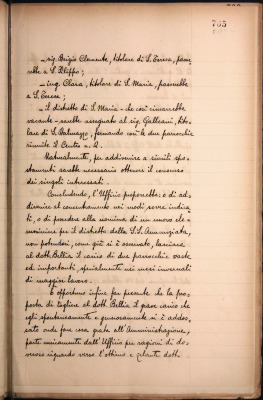 765
- sig. Brigio Clemente, titolare di S. Teresa, passe-
rebbe a S. Filippo;
- ing. Clara, titolare di S. Maria, passerebbe
a S. Teresa;
- il distretto di S. Maria - che così rimarrebbe
vacante - sarebbe assegnato al sig. Galleani, tito-
lare di S. Dalmazzo, formando così le due parrocchie
riunite il Centro n. 2.
Naturalmente, per addivenire a simili spo-
stamenti sarebbe necessario ottenere il consenso
dei singoli interessati.
Concludendo, l'Ufficio proporrebbe: o di ad-
divenire al concentramento nei modi sovra indica-
ti, o di procedere alla nomina di un nuovo ele-
mosiniere per il distretto della SS. Annunziata,
non potendosi, come già si è osservato, lasciare
al dott. Bellia il carico di due parrocchie vaste
ed importanti, specialmente nei mesi invernali
di maggior lavoro.
È opportuno infine far presente che la pro-
posta di togliere al dott. Bellia il grave carico che
egli spontaneamente e generosamente si è addos-
sato onde fare cosa grata all'Amministrazione,
parte unicamente dall'Ufficio per ragioni di do-
veroso riguardo verso l'ottimo e zelante dott.